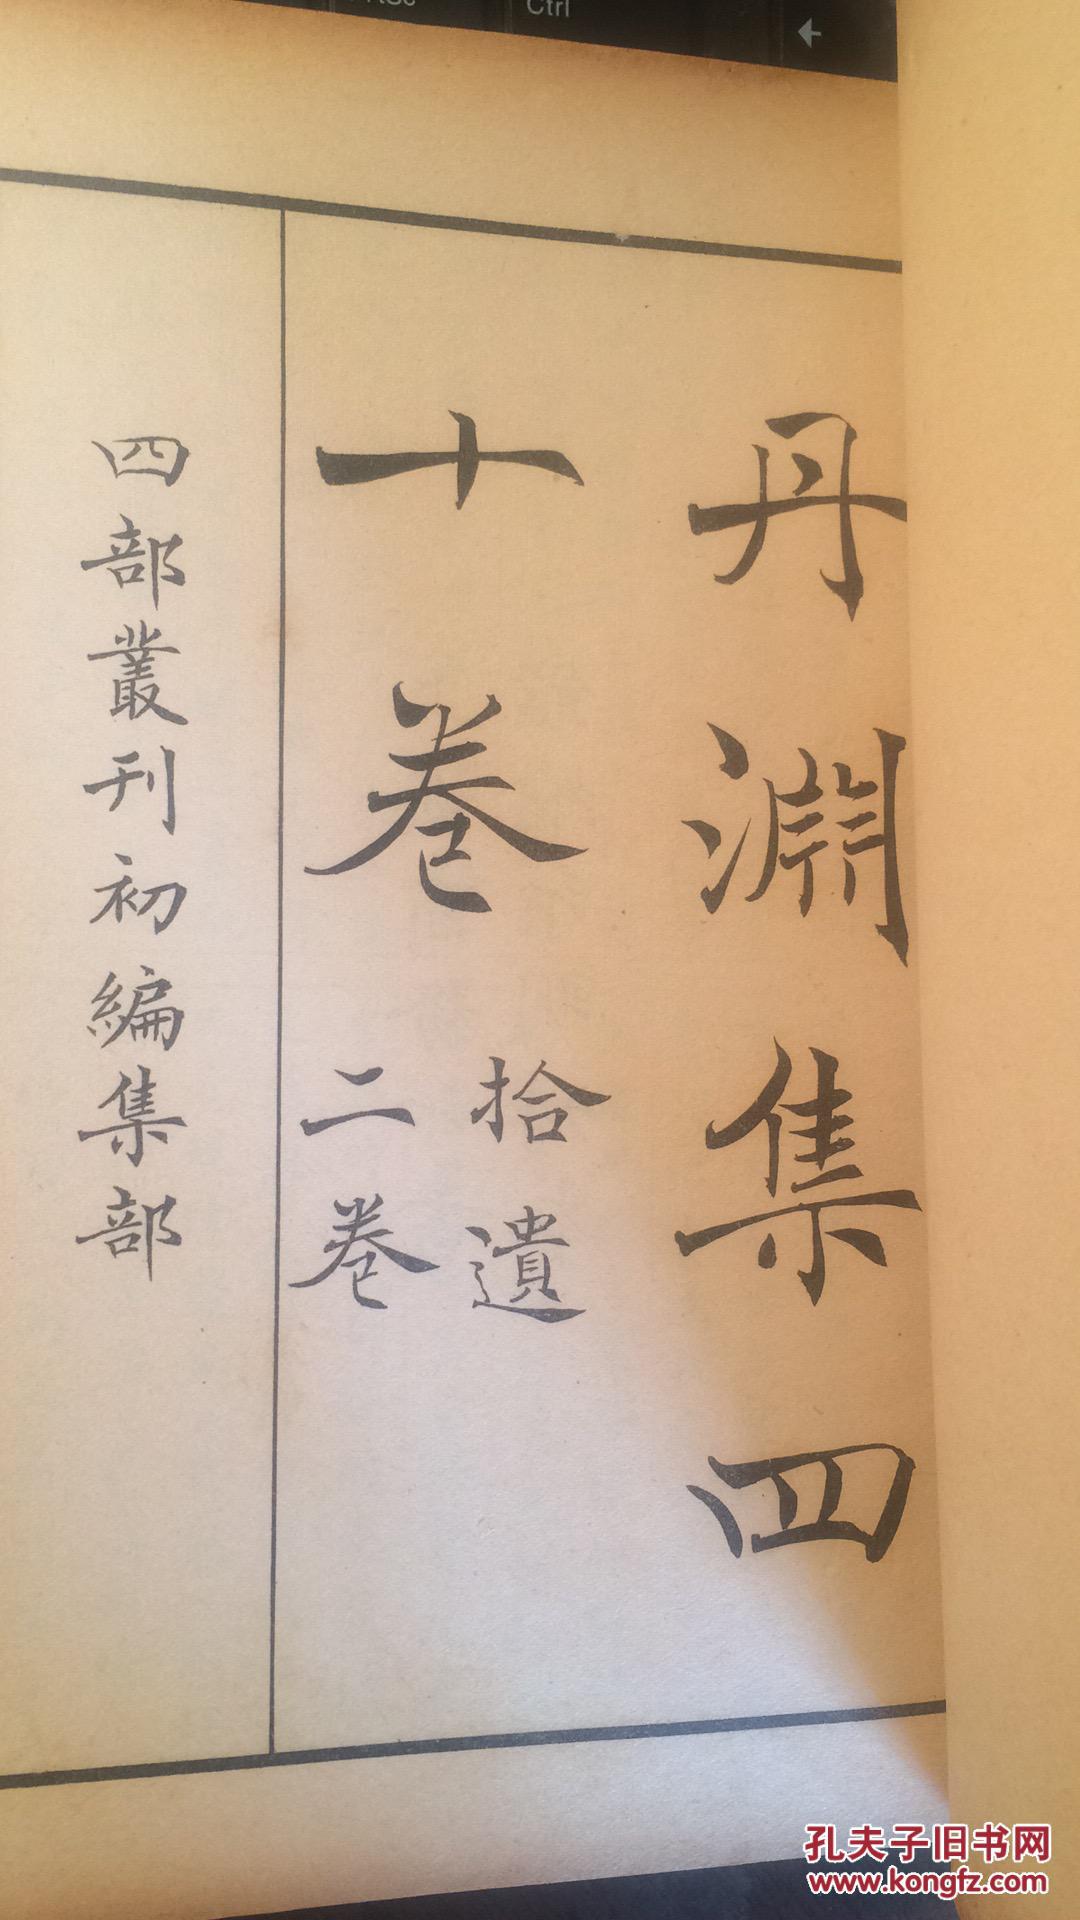 丹淵集四
十卷
拾遺
二卷
四部叢刊初編集部
Ctrl
孔夫子旧书网
www.kongfz.com